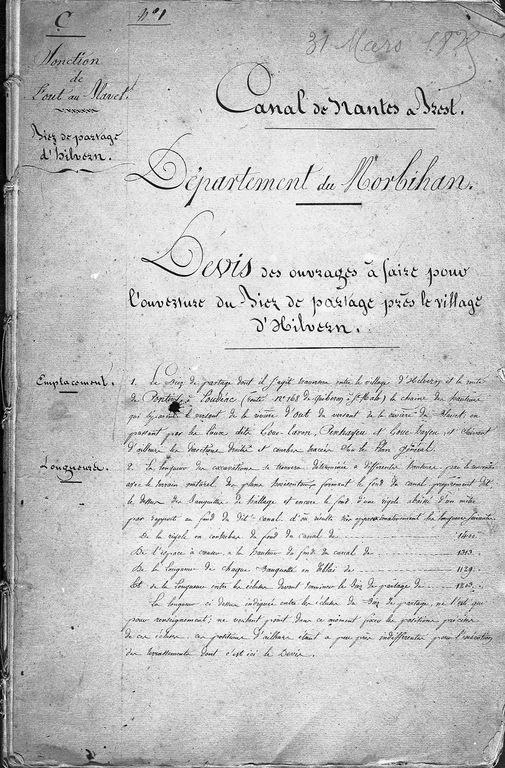 C
N° 1
31 Mars 182
Jonction
de
l'Out au Blavet.
Biez de partage
d'hilvern.
Canal de Nantes a Brest.
Département du Morbihan.
Devis des ouvrages à faire pour
l'ouverture du Biez de partage près le village
d'Hilvern.
Emplacement.
1. Le Biez de partage dont il s'agit traversera entre le village d'Hilvern et la route
de Pontivy à Loudéac (route N° 168 de Quiberon à St Malo) la chaine de hauteurs
qui séparent le versant de la rivière d'Out du versant de la rivière du Blavet, en
passant par les lieux dits et suivant
d'ailleurs les directions droites et courbes tracées sur le Plan général.
Longueurs.
2. La longueur des excavations se trouvera déterminée à différentes hauteurs, par la rencontre
avec le terrain naturel des plans horizontaux formant le fond du canal proprement dit,
le dessus des banquettes de hallage et encore le fond d'une rigole d'un mètre
par rapport au fond du dit canal. d'où résulte approximativement les longueurs suivantes.
De la rigole en contrebas du fond du canal de
De l'espace à creuser à la hauteur du fond du canal de 1313.
De la longueur de chaque banquette en déblai de 1129.
Et de la longueur entre les écluses devant terminer le Biez de partage de
La longueur ci dessus indiquée entre les écluses du Biez de partage, ne l'est que
pour renseignement; ne voulant point dans ce moment fixer les positions précises
de ces écluses, ces positions d'ailleurs étant à peu près indifférentes pour l'exécution
des terrassements dont c'est ici le Devis.